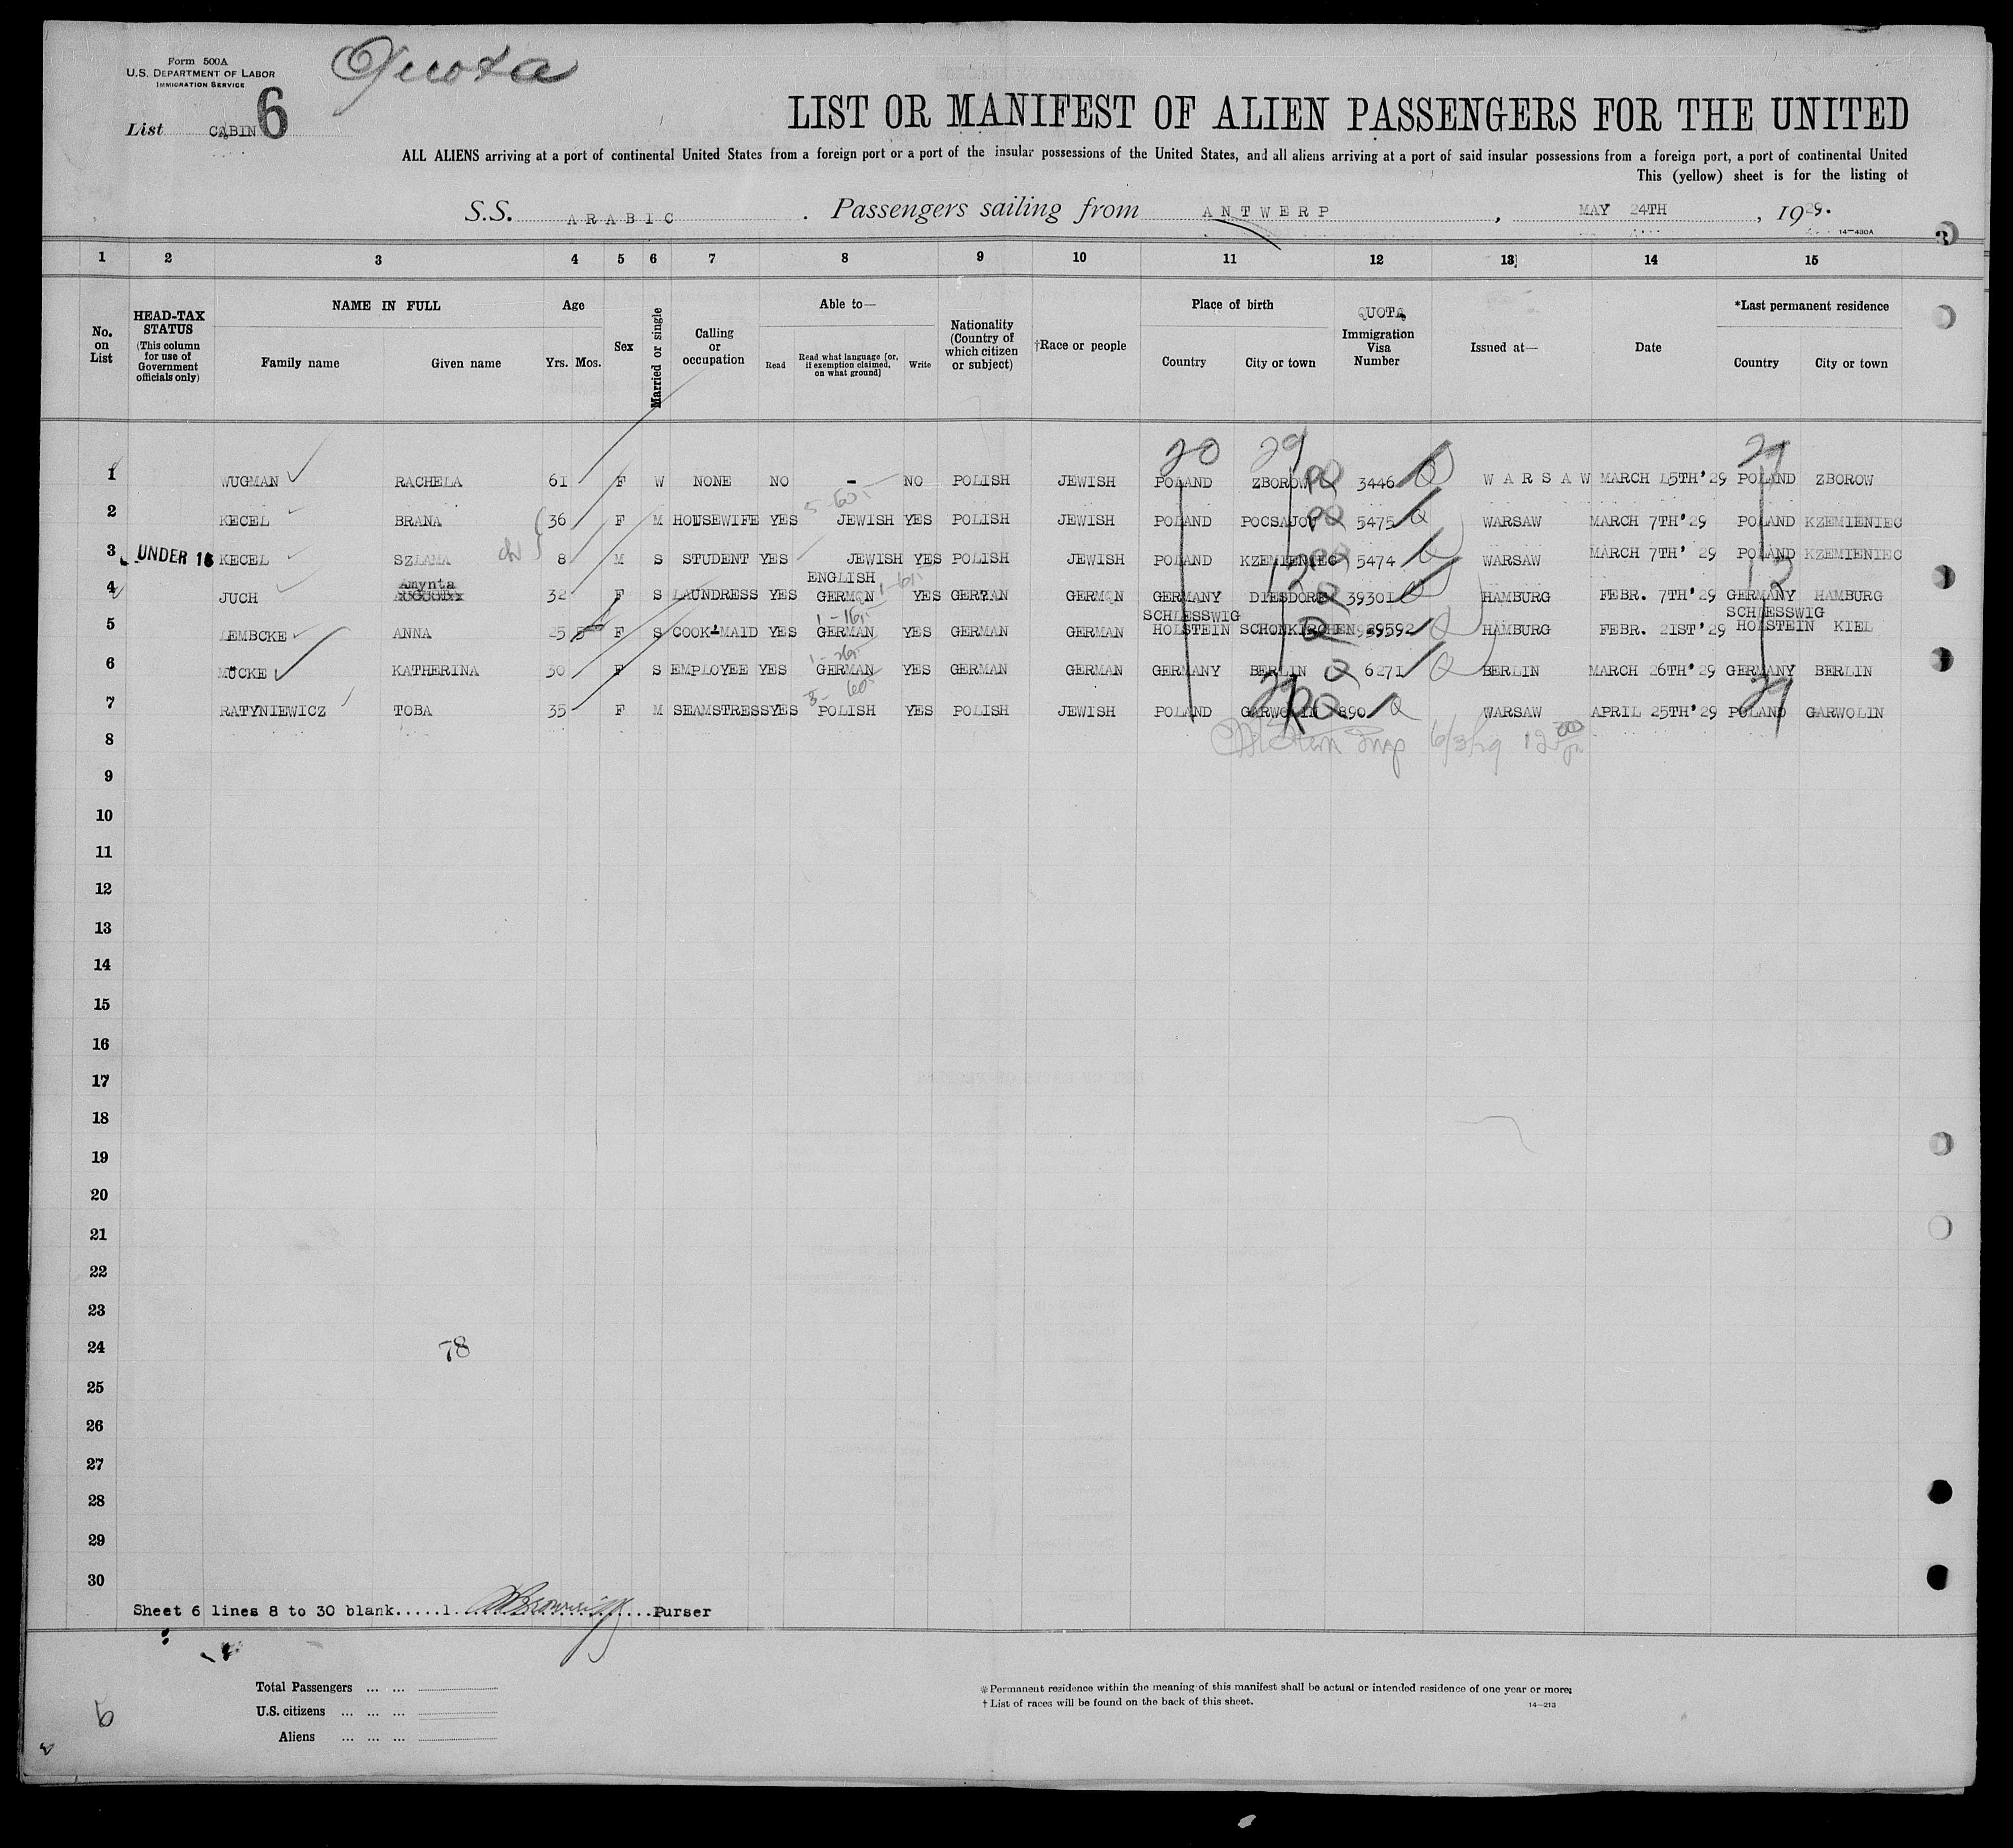 Form 500A
U.S. DEPARTMENT OF LABOR
IMMIGRATION SERVICE
Quota
List CABIN 6
LIST OR MANIFEST OF ALIEN PASSENGERS FOR THE UNITED
ALL ALIENS arriving at a port of continental United States from a foreign port or a port of the insular possessions of the United States, and all aliens arriving at a port of said insular possessions from a foreign port, a port of continental United
This (yellow) sheet is for the listing of
S.S. ARABIC . Passengers sailing from ANTWERP , MAY 24TH , 1929.
14-430A
3
1 2 3 4 5 6 7 8 9 10 11 12 13 14 15
No. on List
HEAD-TAX STATUS (This column for use of Government officials only)
NAME IN FULL
Family name Given name
Age
Yrs. Mos.
Sex
Married or single
Calling or occupation
Able to—
Read
Read what language [or, if exemption claimed, on what ground]
Write
Nationality (Country of which citizen or subject)
†Race or people
Place of birth
Country City or town
QUOTA Immigration Visa Number
Issued at—
Date
*Last permanent residence
Country City or town
20 29 29
1 WUGMAN RACHELA 61 F W NONE NO - NO POLISH JEWISH POLAND ZBOROW PQ 3446 Q WARSAW MARCH 15TH'29 POLAND ZBOROW
2 KECEL BRANA 36 F M HOUSEWIFE YES JEWISH YES POLISH JEWISH POLAND POCSAJOV PQ 5475 Q WARSAW MARCH 7TH'29 POLAND KZEMIENIEC
3 UNDER 16 KECEL SZLAMA ch 8 M S STUDENT YES JEWISH YES POLISH JEWISH POLAND KZEMIENIEC 5474 Q WARSAW MARCH 7TH' 29 POLAND KZEMIENIEC
Amynta ENGLISH 12 12
4 JUCH 32 F S LAUNDRESS YES GERMAN YES GERMAN GERMAN GERMANY DIESDORF Q 39301 Q HAMBURG FEBR. 7TH'29 GERMANY HAMBURG
SCHLESSWIG SCHLESSWIG
5 LEMBCKE ANNA 25 F S COOK-MAID YES GERMAN YES GERMAN GERMAN HOLSTEIN SCHONKIRCHEN Q 39592 Q HAMBURG FEBR. 21ST'29 HOLSTEIN KIEL
6 MÜCKE KATHERINA 30 F S EMPLOYEE YES GERMAN YES GERMAN GERMAN GERMANY BERLIN Q 6271 Q BERLIN MARCH 26TH'29 GERMANY BERLIN
29 29
7 RATYNIEWICZ TOBA 35 F M SEAMSTRESS YES POLISH YES POLISH JEWISH POLAND GARWOLIN PQ 890 Q WARSAW APRIL 25TH'29 POLAND GARWOLIN
8 6/3/29 12
9
10
11
12
13
14
15
16
17
18
19
20
21
22
23
24 78
25
26
27
28
29
30
Sheet 6 lines 8 to 30 blank.....1...............Purser
Total Passengers ... ...
U.S. citizens ... ... ...
Aliens ... ... ...
* Permanent residence within the meaning of this manifest shall be actual or intended residence of one year or more;
† List of races will be found on the back of this sheet.
14-213